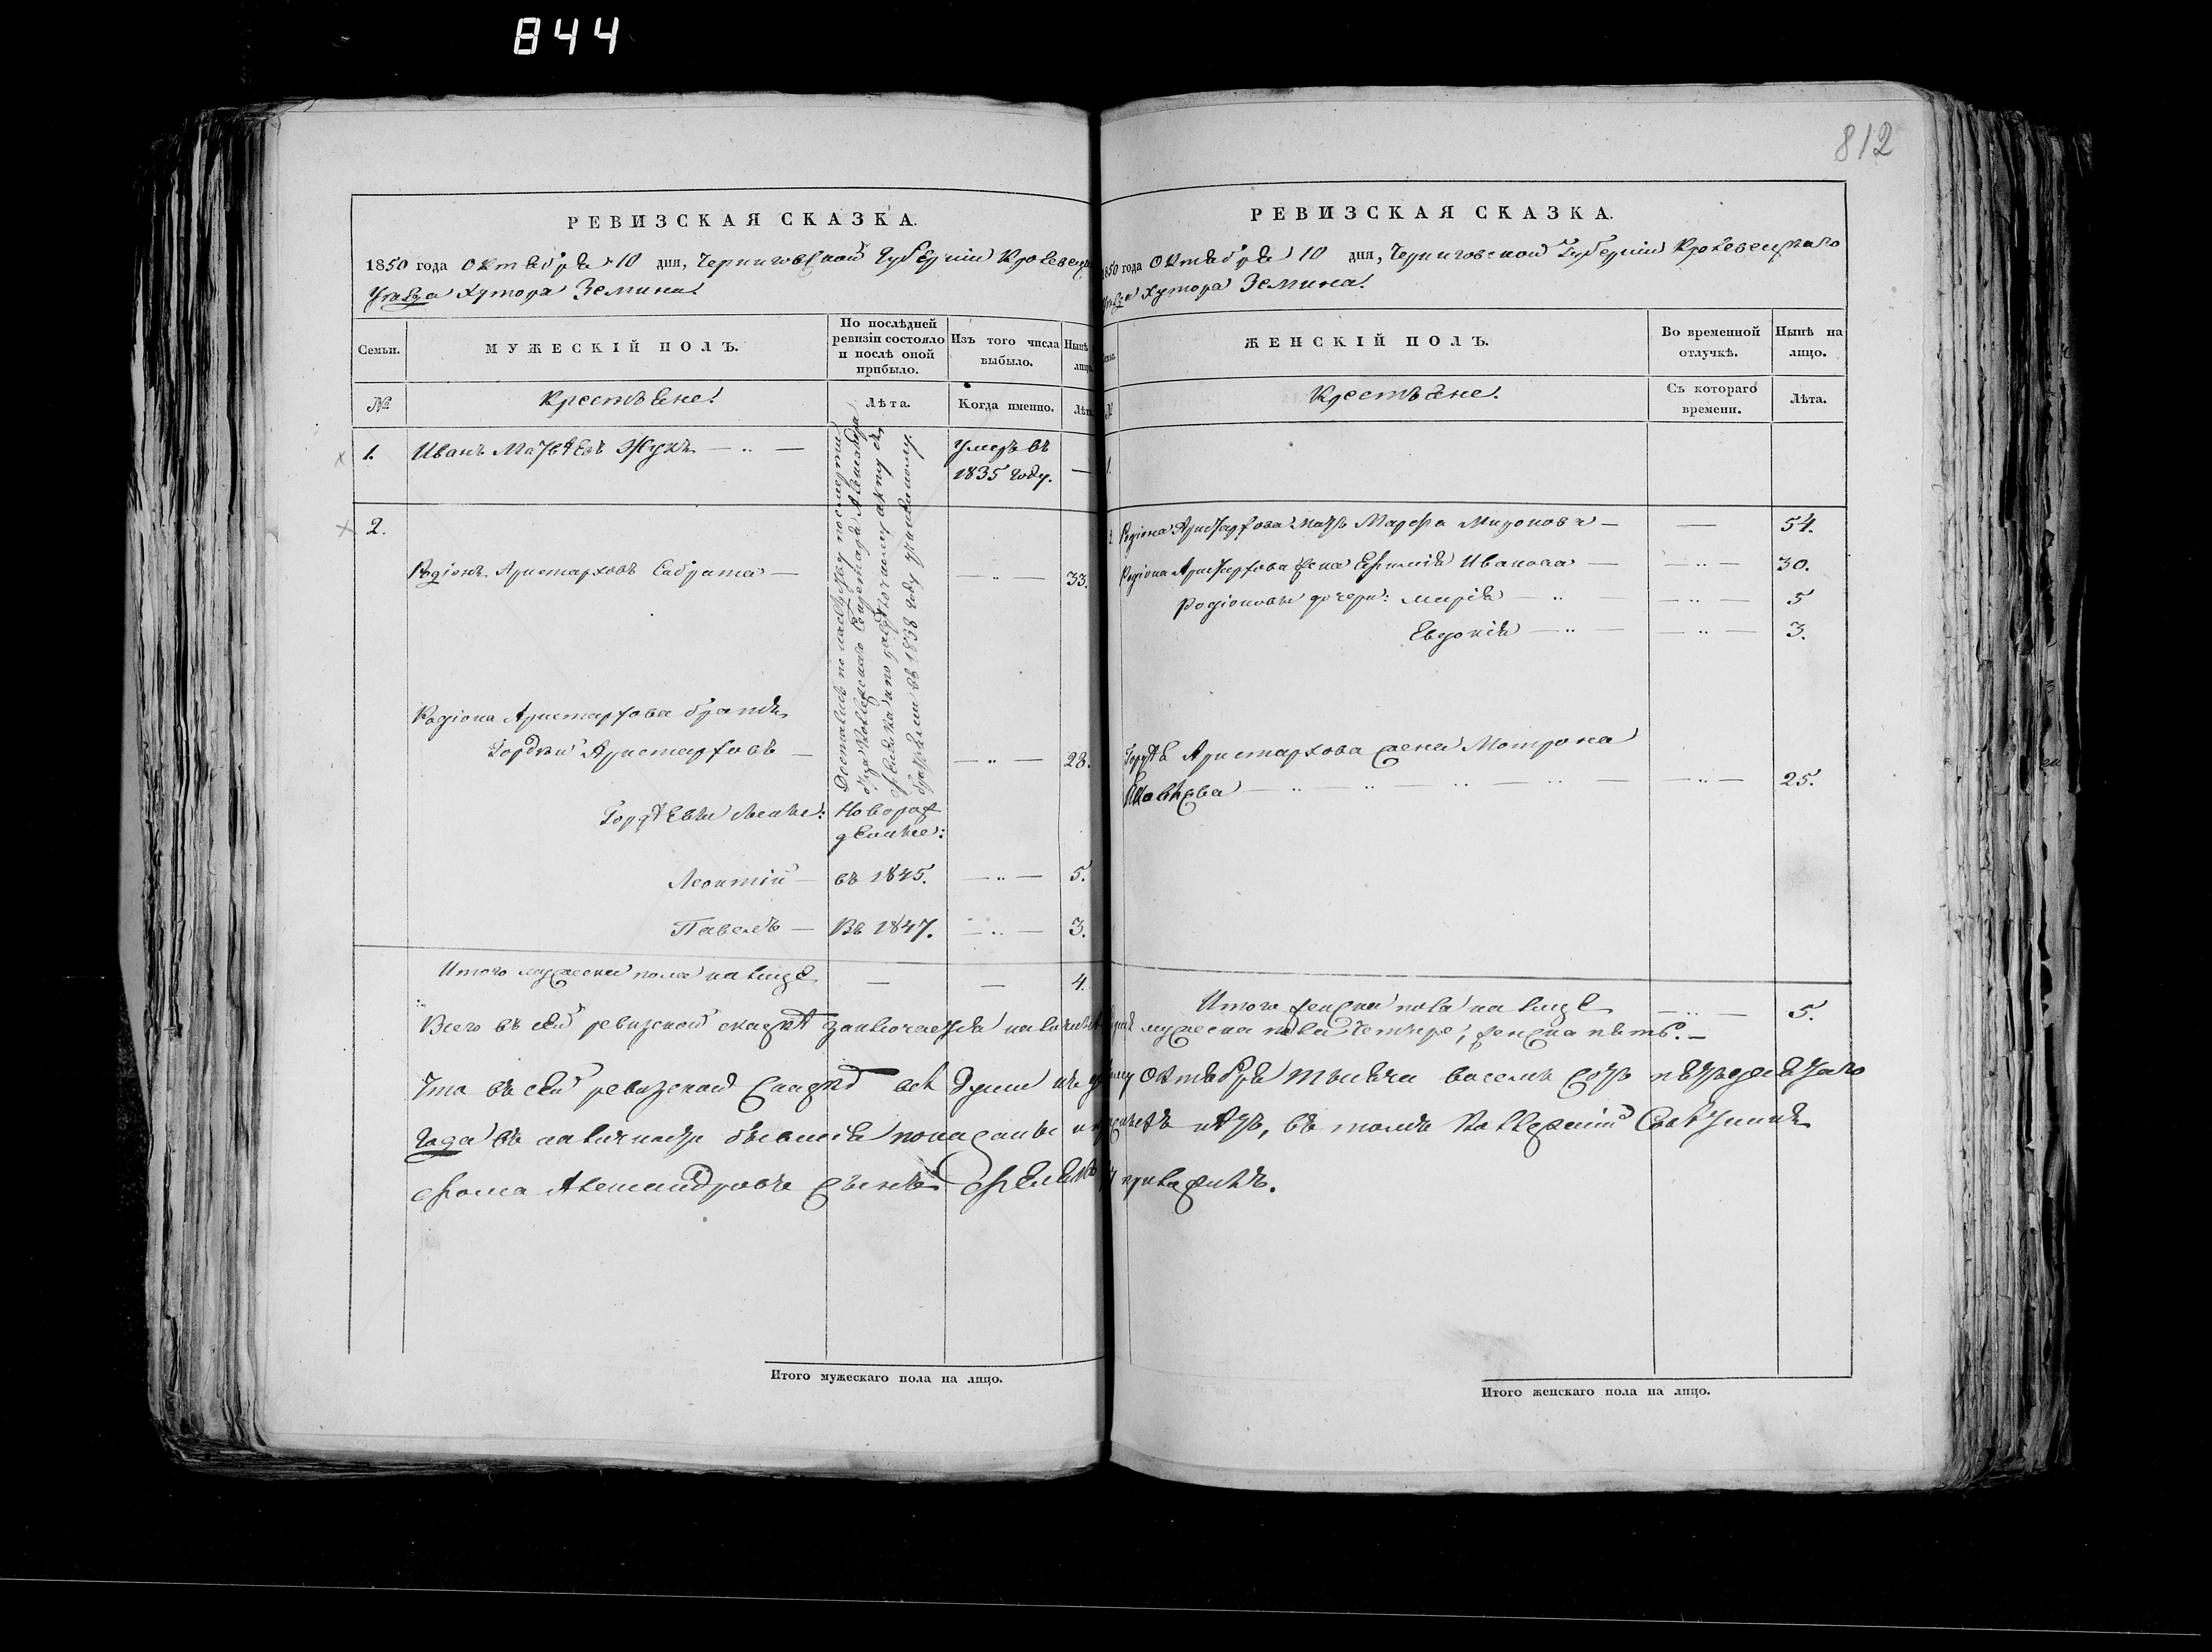 844
812
РЕВИЗСКАЯ СКАЗКА.
1850 года Октября 10 дня, Черниговской Губерніи Кролевец
Уѣзда Хутора Земина.
Семьи.
МУЖЕСКІЙ ПОЛЪ.
По послѣдней
ревизіи состояло
и послѣ оной
прибыло.
Изъ того числа
выбыло.
Нынѣ
лицо
№
Крестьяне.
Лѣта.
Когда именно.
Лѣта
1.
Иванъ Матвѣевъ Жукъ
Умеръ въ
1835 году.
—
2.
Достались по наслѣдству по смерти
Коллежскаго Секретаря Александра
и по раздѣльному акту съ
въ 1838 году
Родіонъ Аристарховъ
33.
Родіона Аристархова братъ
Гордѣй Аристарховъ
28.
Гордѣевы сыновья:
Новорож
денные:
Леонтій
въ 1845.
5.
Павелъ
Въ 1847.
3.
Итого мужеска пола на лице
4.
Всего въ сей ревизской сказкѣ заключается на
Что въ сей ревизской сказкѣ всѣ души
года въ наличности бывшія показаны и
Фома Александровъ сынъ
Итого мужескаго пола на лицо.
РЕВИЗСКАЯ СКАЗКА.
1850 года Октября 10 дня, Черниговской Губерніи Кролевецкаго
Уѣзда Хутора Земина.
Семьи.
ЖЕНСКІЙ ПОЛЪ.
Во временной
отлучкѣ.
Нынѣ на
лицо.
№
Крестьяне.
Съ котораго
времени.
Лѣта.
1.
2.
Родіона Аристархова мать Марфа Миронова
54.
Родіона Аристархова жена Ефимія Иванова
30.
Родіоновы дочери: Марія
5
Евдокія
3.
Гордѣя Аристархова жена Мотрона
Яковлева
25.
Итого женска пола на лице
5.
мужеска пола четыре, женска пять.
Октября тысяча восемь сотъ пятьдесятаго
нѣтъ, въ томъ Коллежскій Совѣтникъ
приложилъ.
Итого женскаго пола на лицо.